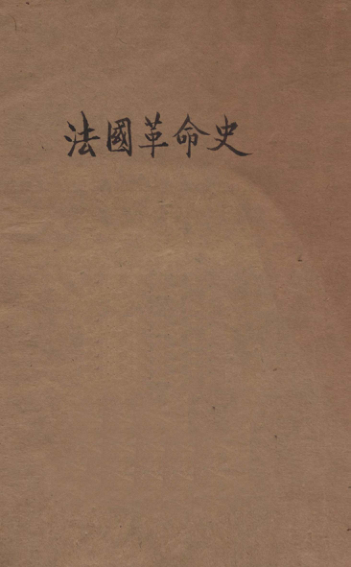 法國革命史